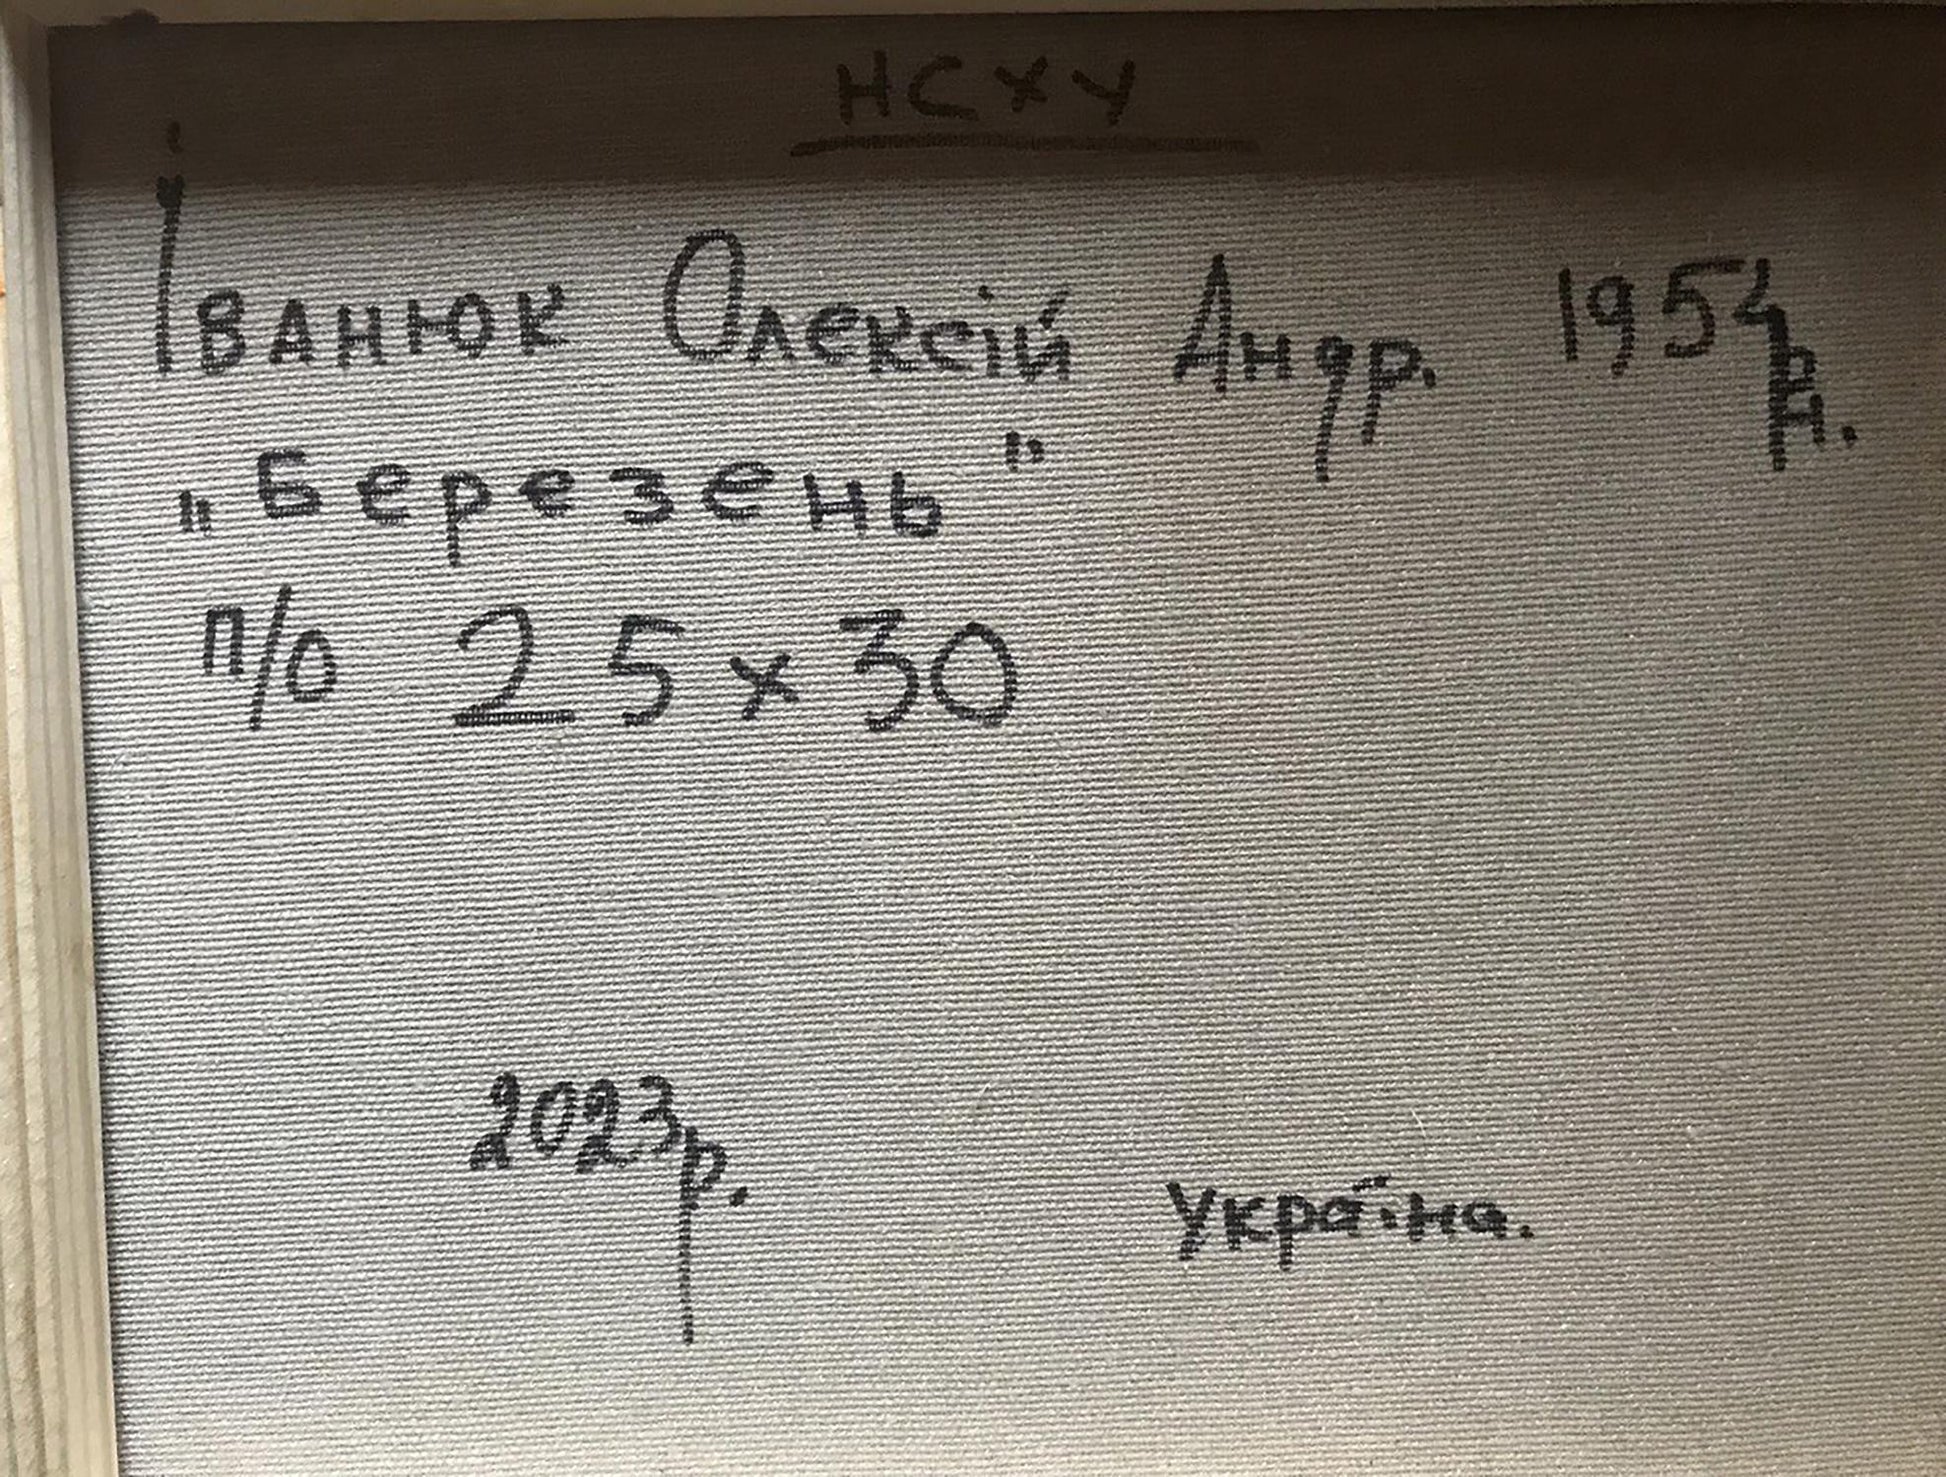 НСХУ
Іванюк Олексій Андр. 1954 р.н.
„Березень"
п/о 25х30
2023р.
Україна.